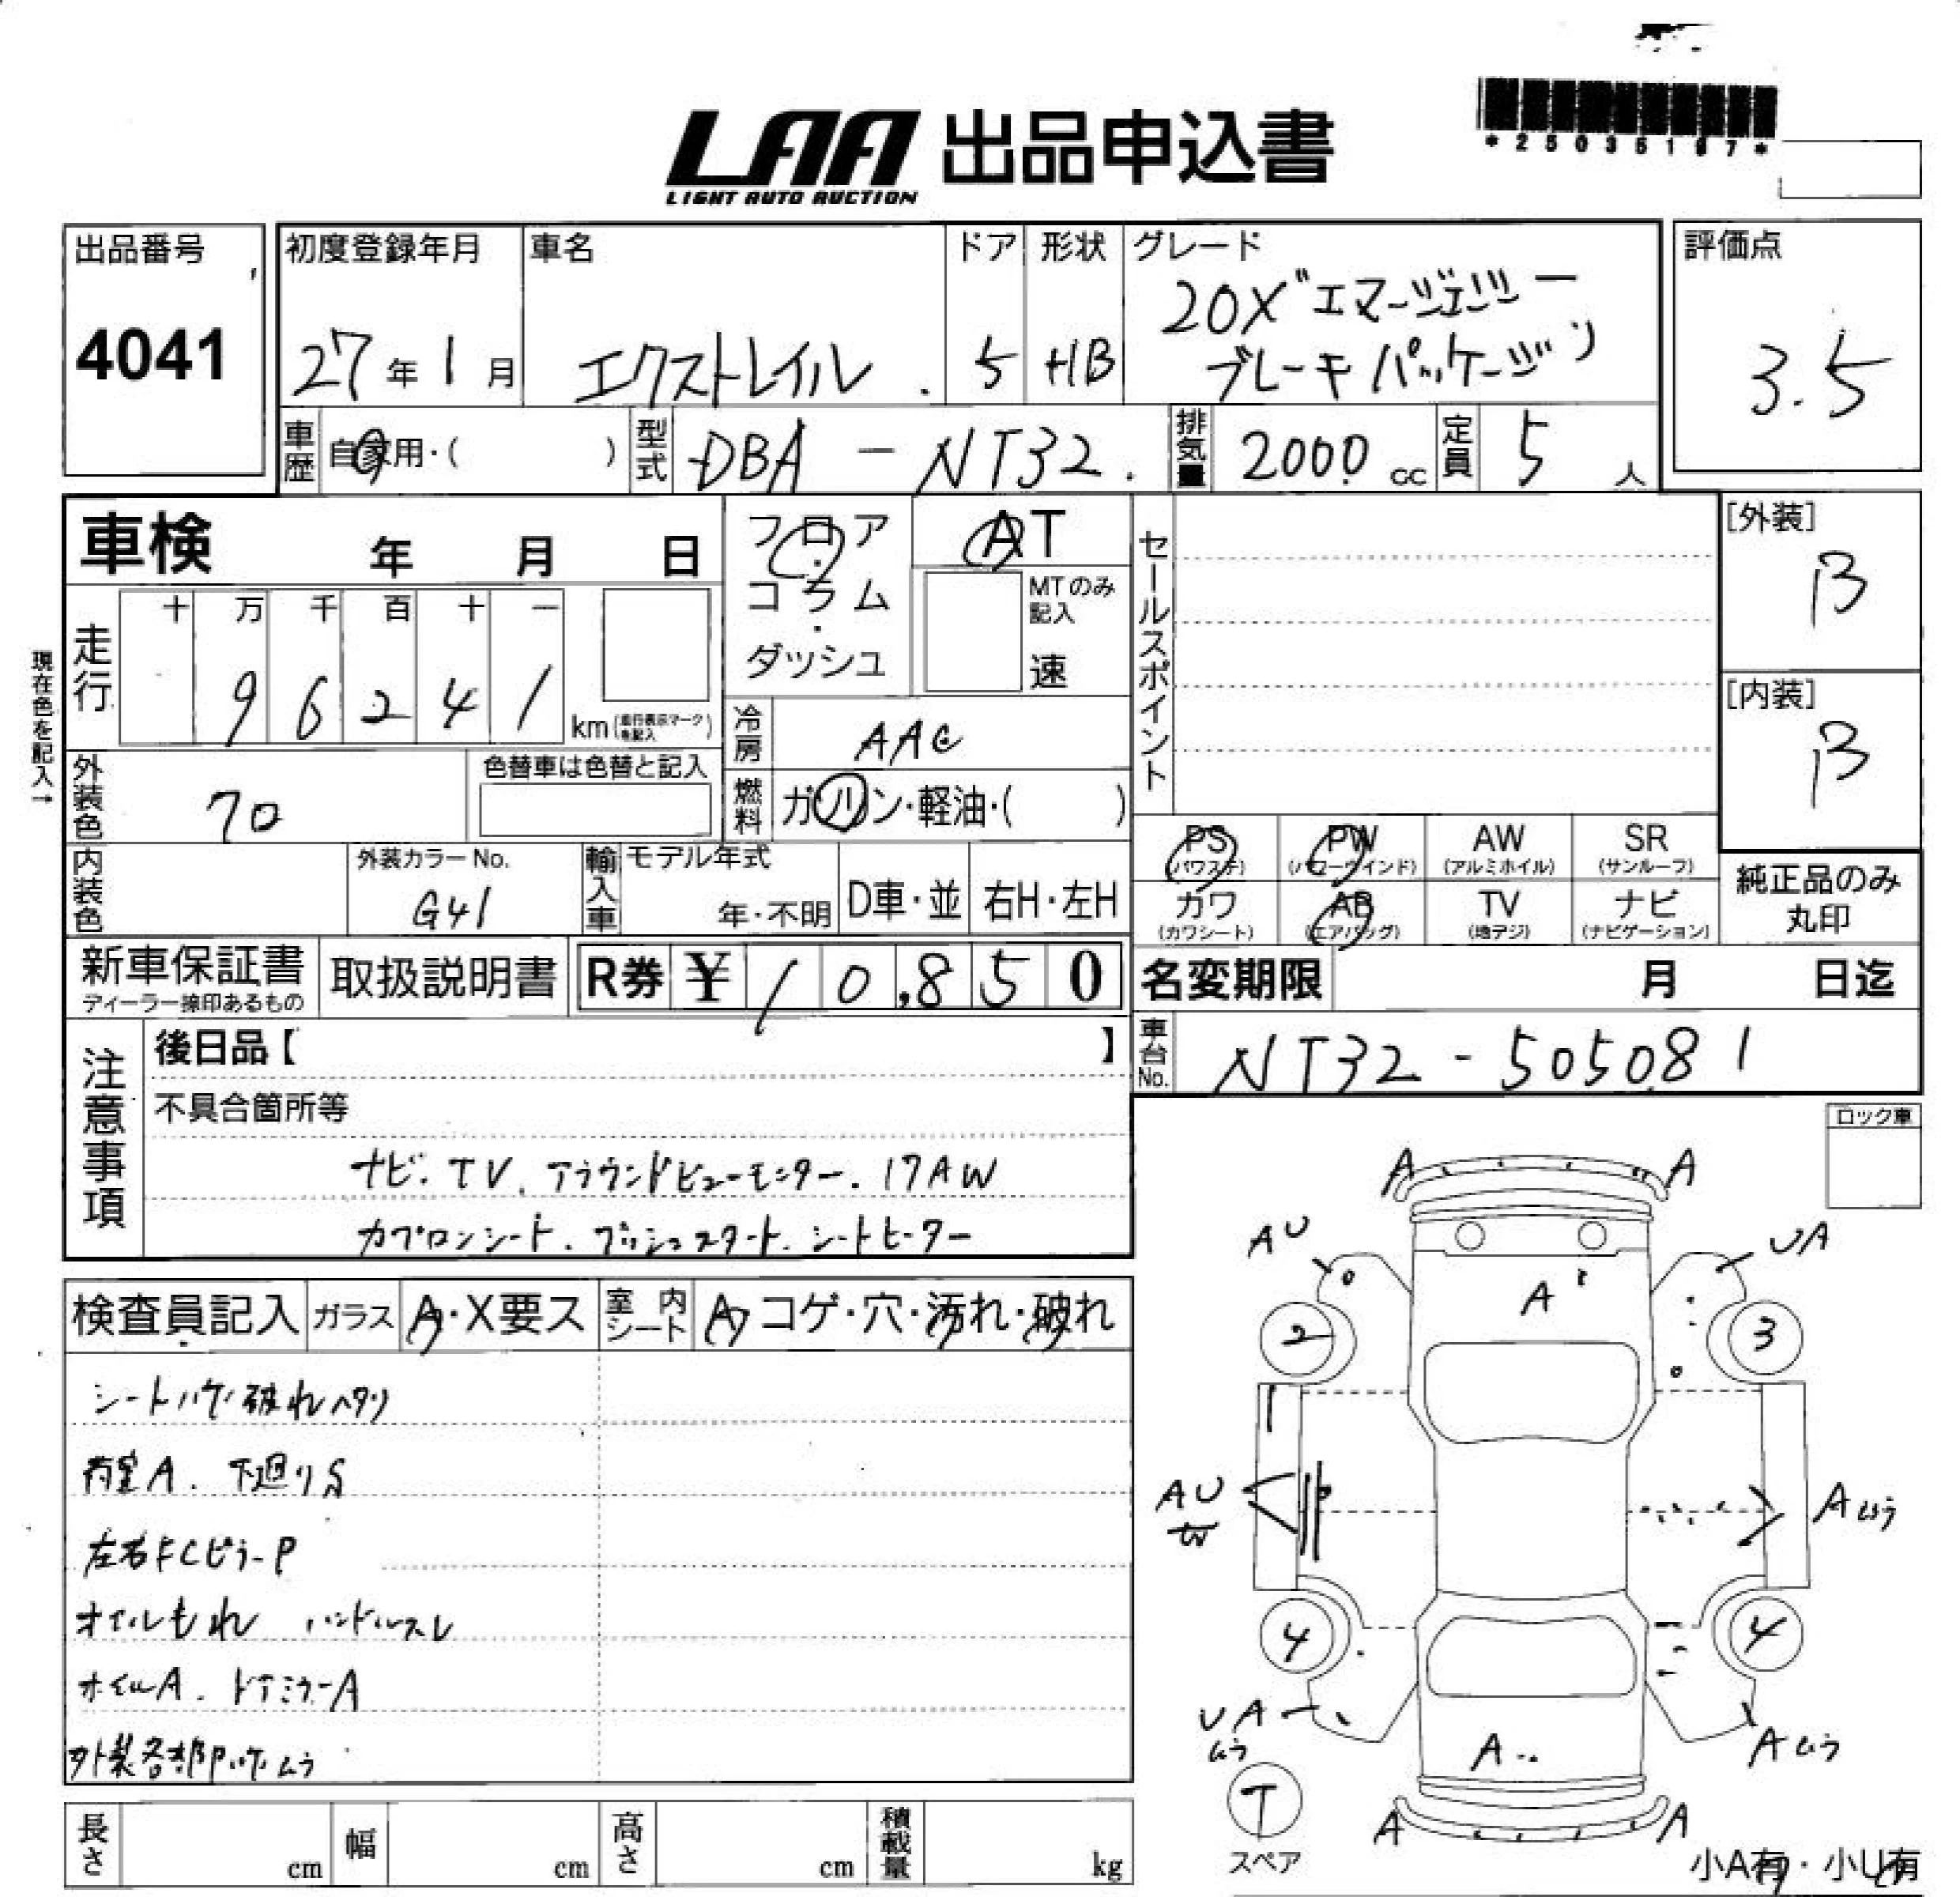 *25035197*
LAA 出品申込書
LIGHT AUTO AUCTION
出品番号
4041
初度登録年月
27年1月
車名
エクストレイル
ドア
5
形状
HB
グレード
20X"エマージェンシー
ブレーキパッケージ"
評価点
3.5
車歴
自家用・( )
型式
DBA-NT32
排気量
2000cc
定員
5人
車検 年 月 日
フロア・コラム・ダッシュ
AT
MTのみ記入
速
セールスポイント
[外装]
B
[内装]
B
現在色を記入→
走行
十 万 千 百 十 一
9 6 2 4 1
km(走行表示マークを記入)
冷房
AAC
燃料
ガソリン・軽油・( )
外装色
クロ
色替車は色替と記入
内装色
外装カラーNo.
G41
輸入車
モデル年式
年・不明
D車・並
右H・左H
PS
(パワステ)
PW
(パワーウインド)
AW
(アルミホイル)
SR
(サンルーフ)
カワ
(カワシート)
AB
(エアバッグ)
TV
(地デジ)
ナビ
(ナビゲーション)
純正品のみ
丸印
新車保証書
ディーラー捺印あるもの
取扱説明書
R券 ¥10,850
名変期限 月 日迄
車台No.
NT32-505081
注意事項
後日品【 】
不具合箇所等
ナビ.TV.アラウンドビューモニター.17AW
カプロンシート.プッシュスタート.シートヒーター
ロック車
検査員記入
ガラス
A・X要ス
室内シート
A・コゲ・穴・汚れ・破れ
シートハゲ破れヘタリ
荷室A. 下廻りS
左右FCピラーP
オイルもれ ハンドルスレ
ホイルA. ドアミラーA
外装各部Pハゲムラ
A A
AU
UA
A
2
3
AU
W
Aムラ
4
4
UA
ムラ
A
Aムラ
T
スペア
A A
小A有・小U有
長さ cm
幅 cm
高さ cm
積載量 kg